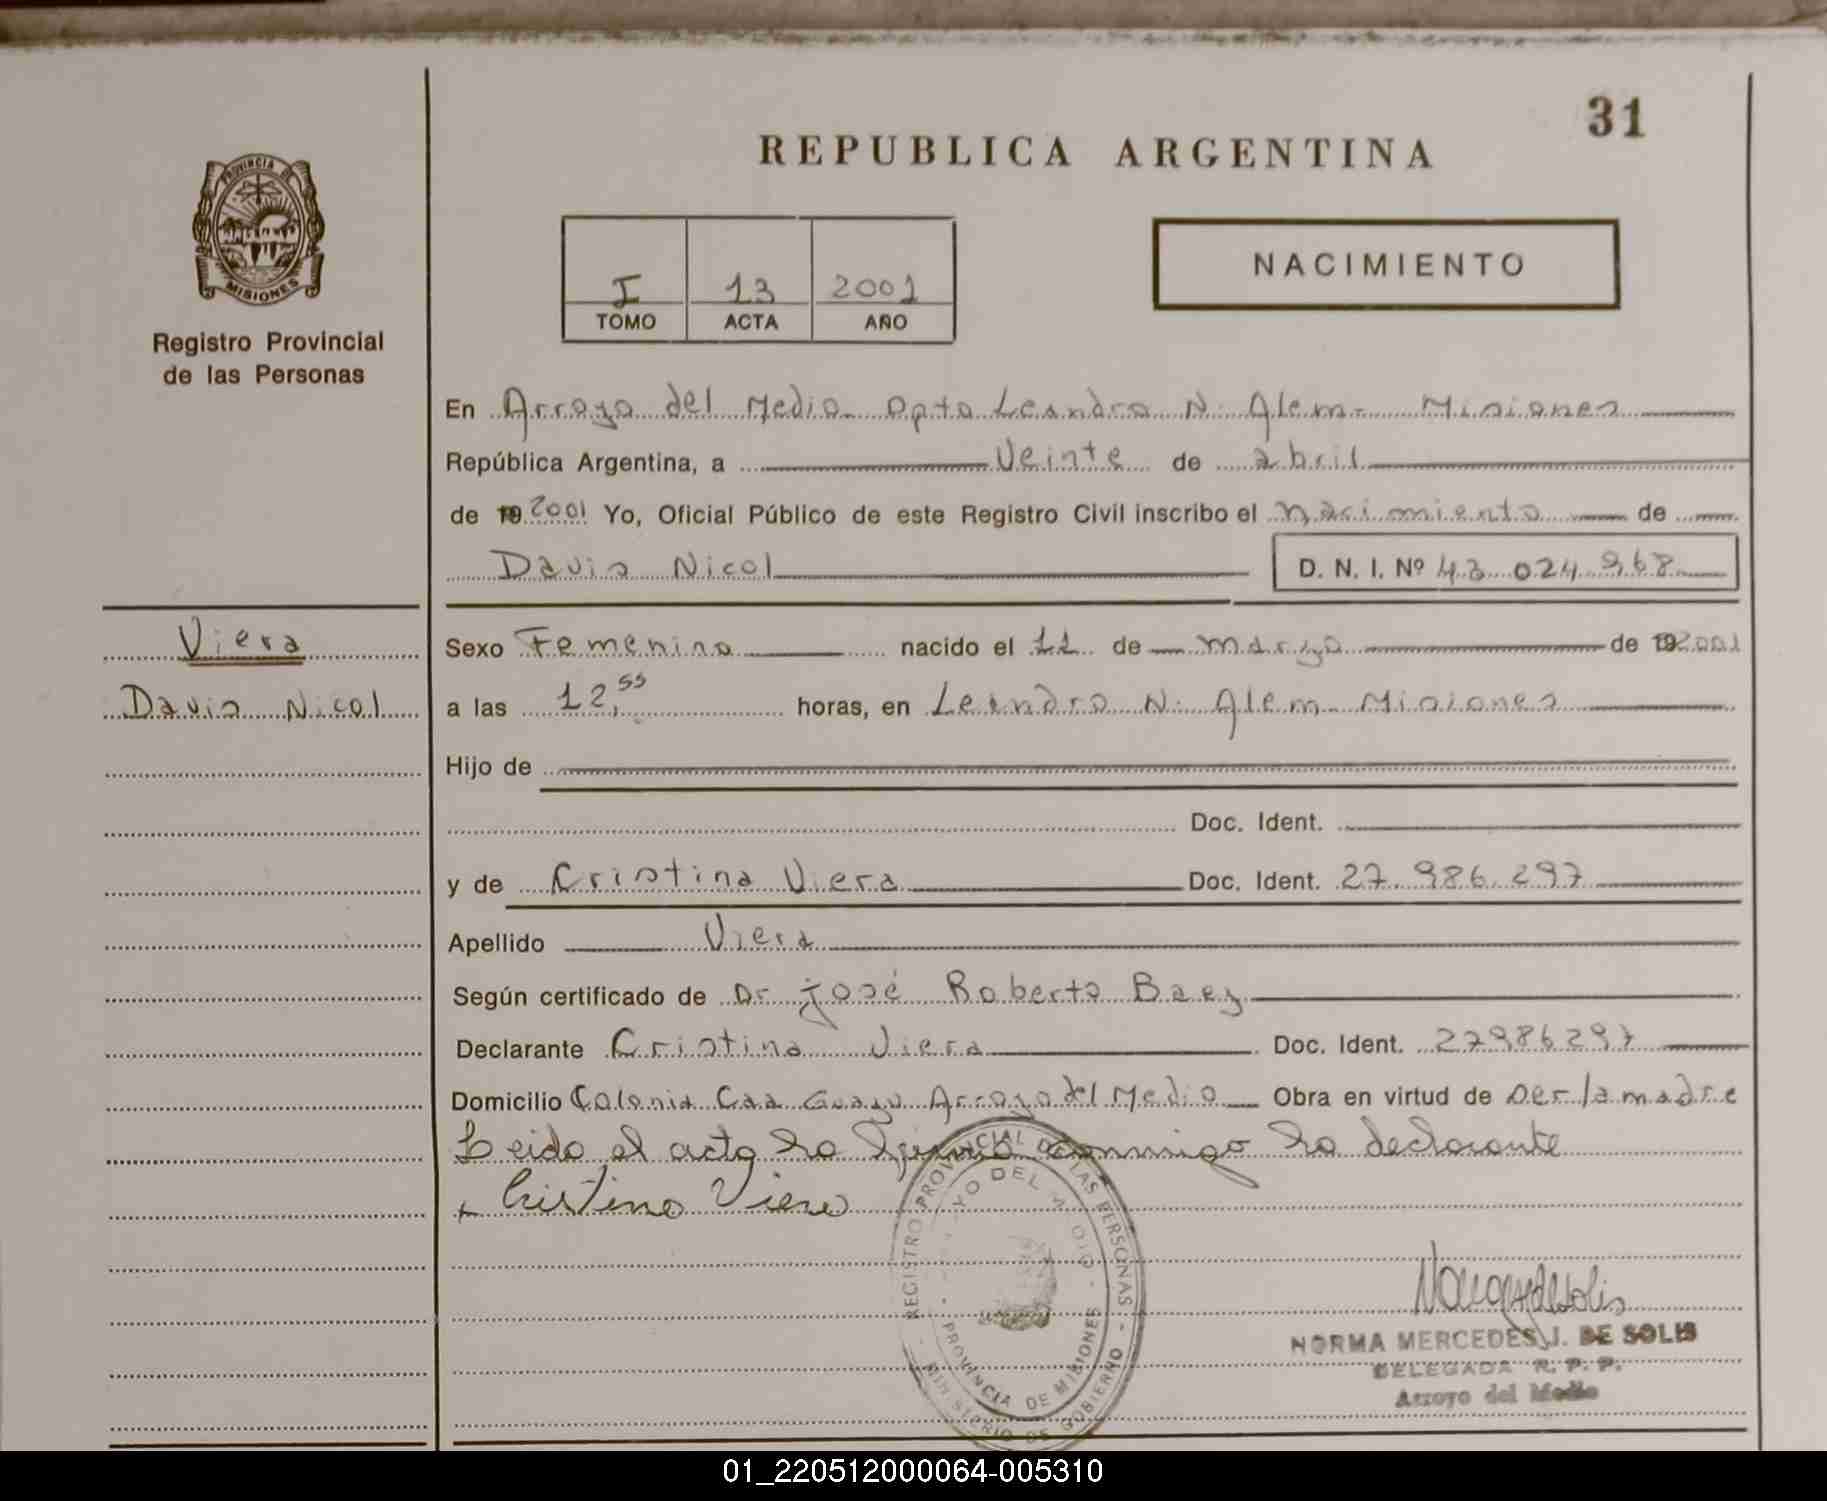 31
REPUBLICA ARGENTINA
PROVINCIA DE
MISIONES
Registro Provincial
de las Personas
I 13 2001
TOMO ACTA AÑO
NACIMIENTO
En Arroyo del Medio Dpto Leandro N. Alem - Misiones
República Argentina, a Veinte de abril
de 19 2001 Yo, Oficial Público de este Registro Civil inscribo el nacimiento de
Davis Nicol D. N. I. Nº 43 024 968
Viera
Davis Nicol
Sexo Femenino nacido el 11 de marzo de 19 2001
a las 12,55 horas, en Leandro N. Alem - Misiones
Hijo de
Doc. Ident.
y de Cristina Viera Doc. Ident. 27.986.297
Apellido Viera
Según certificado de Dr José Roberto Baez
Declarante Cristina Viera Doc. Ident. 27986297
Domicilio Colonia Caa Guazu Arroyo del Medio Obra en virtud de ser la madre
Leida el acta la firma conmigo la declarante
x Cristina Viera
REGISTRO PROVINCIAL DE LAS PERSONAS - MINISTERIO DE GOBIERNO
ARROYO DEL MEDIO - PROVINCIA DE MISIONES
NORMA MERCEDES J. DE SOLIS
DELEGADA R. P. P.
Arroyo del Medio
01_220512000064-005310